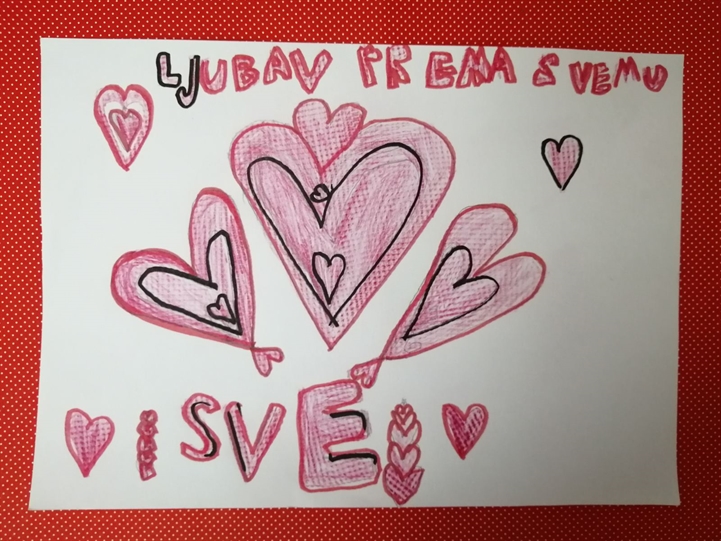 LJUBAV PREMA SVEMU
SVE